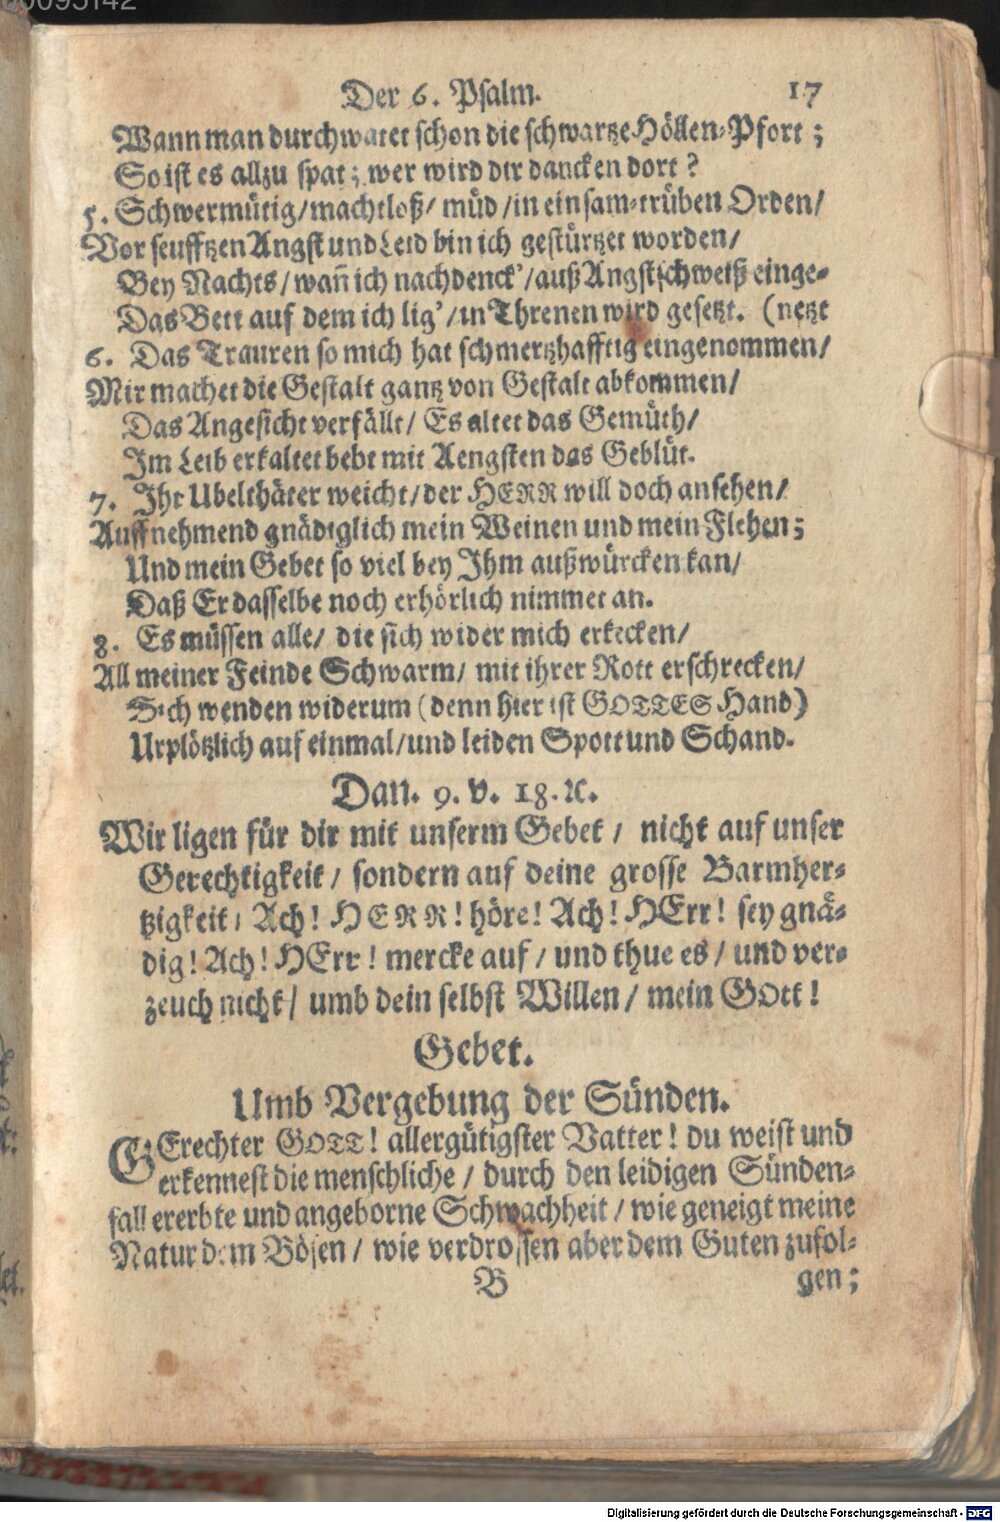 Der 6. Psalm. 17
Wann man durchwatet schon die schwartze Höllen-Pfort;
So ist es allzu spat; wer wird dir dancken dort?
5. Schwermütig/machtloß/ müd/in einsam-trüben Orden/
Vor seufftzen Angst und Leid bin ich gestürtzet worden/
Bey Nachts/wañ ich nachdenck'/auß Angstschweiß einge-
Das Bett auf dem ich lig'/in Threnen wird gesetzt. (netzt
6. Das Trauren so mich hat schmertzhafftig eingenommen/
Mir machet die Gestalt gantz von Gestalt abkommen/
Das Angesicht verfällt/ Es altet das Gemüth/
Im Leib erkaltet bebt mit Aengsten das Geblüt.
7. Ihr Ubelthäter weicht/der HERR will doch ansehen/
Auffnehmend gnädiglich mein Weinen und mein Flehen;
Und mein Gebet so viel bey Ihm außwürcken kan/
Daß Er dasselbe noch erhörlich nimmet an.
8. Es müssen alle/ die sich wider mich erkecken/
All meiner Feinde Schwarm/ mit ihrer Rott erschrecken/
Sich wenden widerum (denn hier ist GOTTES Hand)
Urplötzlich auf einmal/und leiden Spott und Schand.
Dan. 9. v. 18. ꝛc.
Wir ligen für dir mit unserm Gebet/ nicht auf unser
Gerechtigkeit/ sondern auf deine grosse Barmher-
tzigkeit/ Ach! HERR! höre! Ach! HErr! sey gnä-
dig! Ach! HErr! mercke auf/ und thue es/ und ver-
zeuch nicht/ umb dein selbst Willen/ mein GOtt!
Gebet.
Umb Vergebung der Sünden.
GErechter GOTT! allergütigster Vatter! du weist und
erkennest die menschliche/ durch den leidigen Sünden-
fall ererbte und angeborne Schwachheit/ wie geneigt meine
Natur dem Bösen/ wie verdrossen aber dem Guten zufol-
B gen;
Digitalisierung gefördert durch die Deutsche Forschungsgemeinschaft - DFG